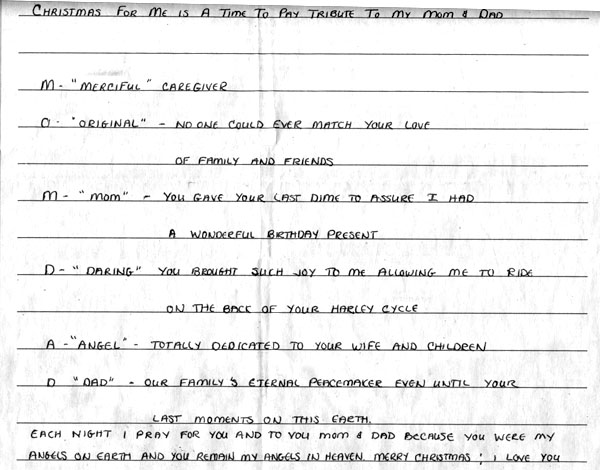 CHRISTMAS FOR ME IS A TIME TO PAY TRIBUTE TO MY MOM & DAD
M - "MERCIFUL" CAREGIVER
O - "ORIGINAL" - NO ONE COULD EVER MATCH YOUR LOVE
OF FAMILY AND FRIENDS
M - "MOM" - YOU GAVE YOUR LAST DIME TO ASSURE I HAD
A WONDERFUL BIRTHDAY PRESENT
D - "DARING" YOU BROUGHT SUCH JOY TO ME ALLOWING ME TO RIDE
ON THE BACK OF YOUR HARLEY CYCLE
A - "ANGEL" - TOTALLY DEDICATED TO YOUR WIFE AND CHILDREN
D "DAD" - OUR FAMILY'S ETERNAL PEACEMAKER EVEN UNTIL YOUR
LAST MOMENTS ON THIS EARTH.
EACH NIGHT I PRAY FOR YOU AND TO YOU MOM & DAD BECAUSE YOU WERE MY
ANGELS ON EARTH AND YOU REMAIN MY ANGELS IN HEAVEN. MERRY CHRISTMAS! I LOVE YOU